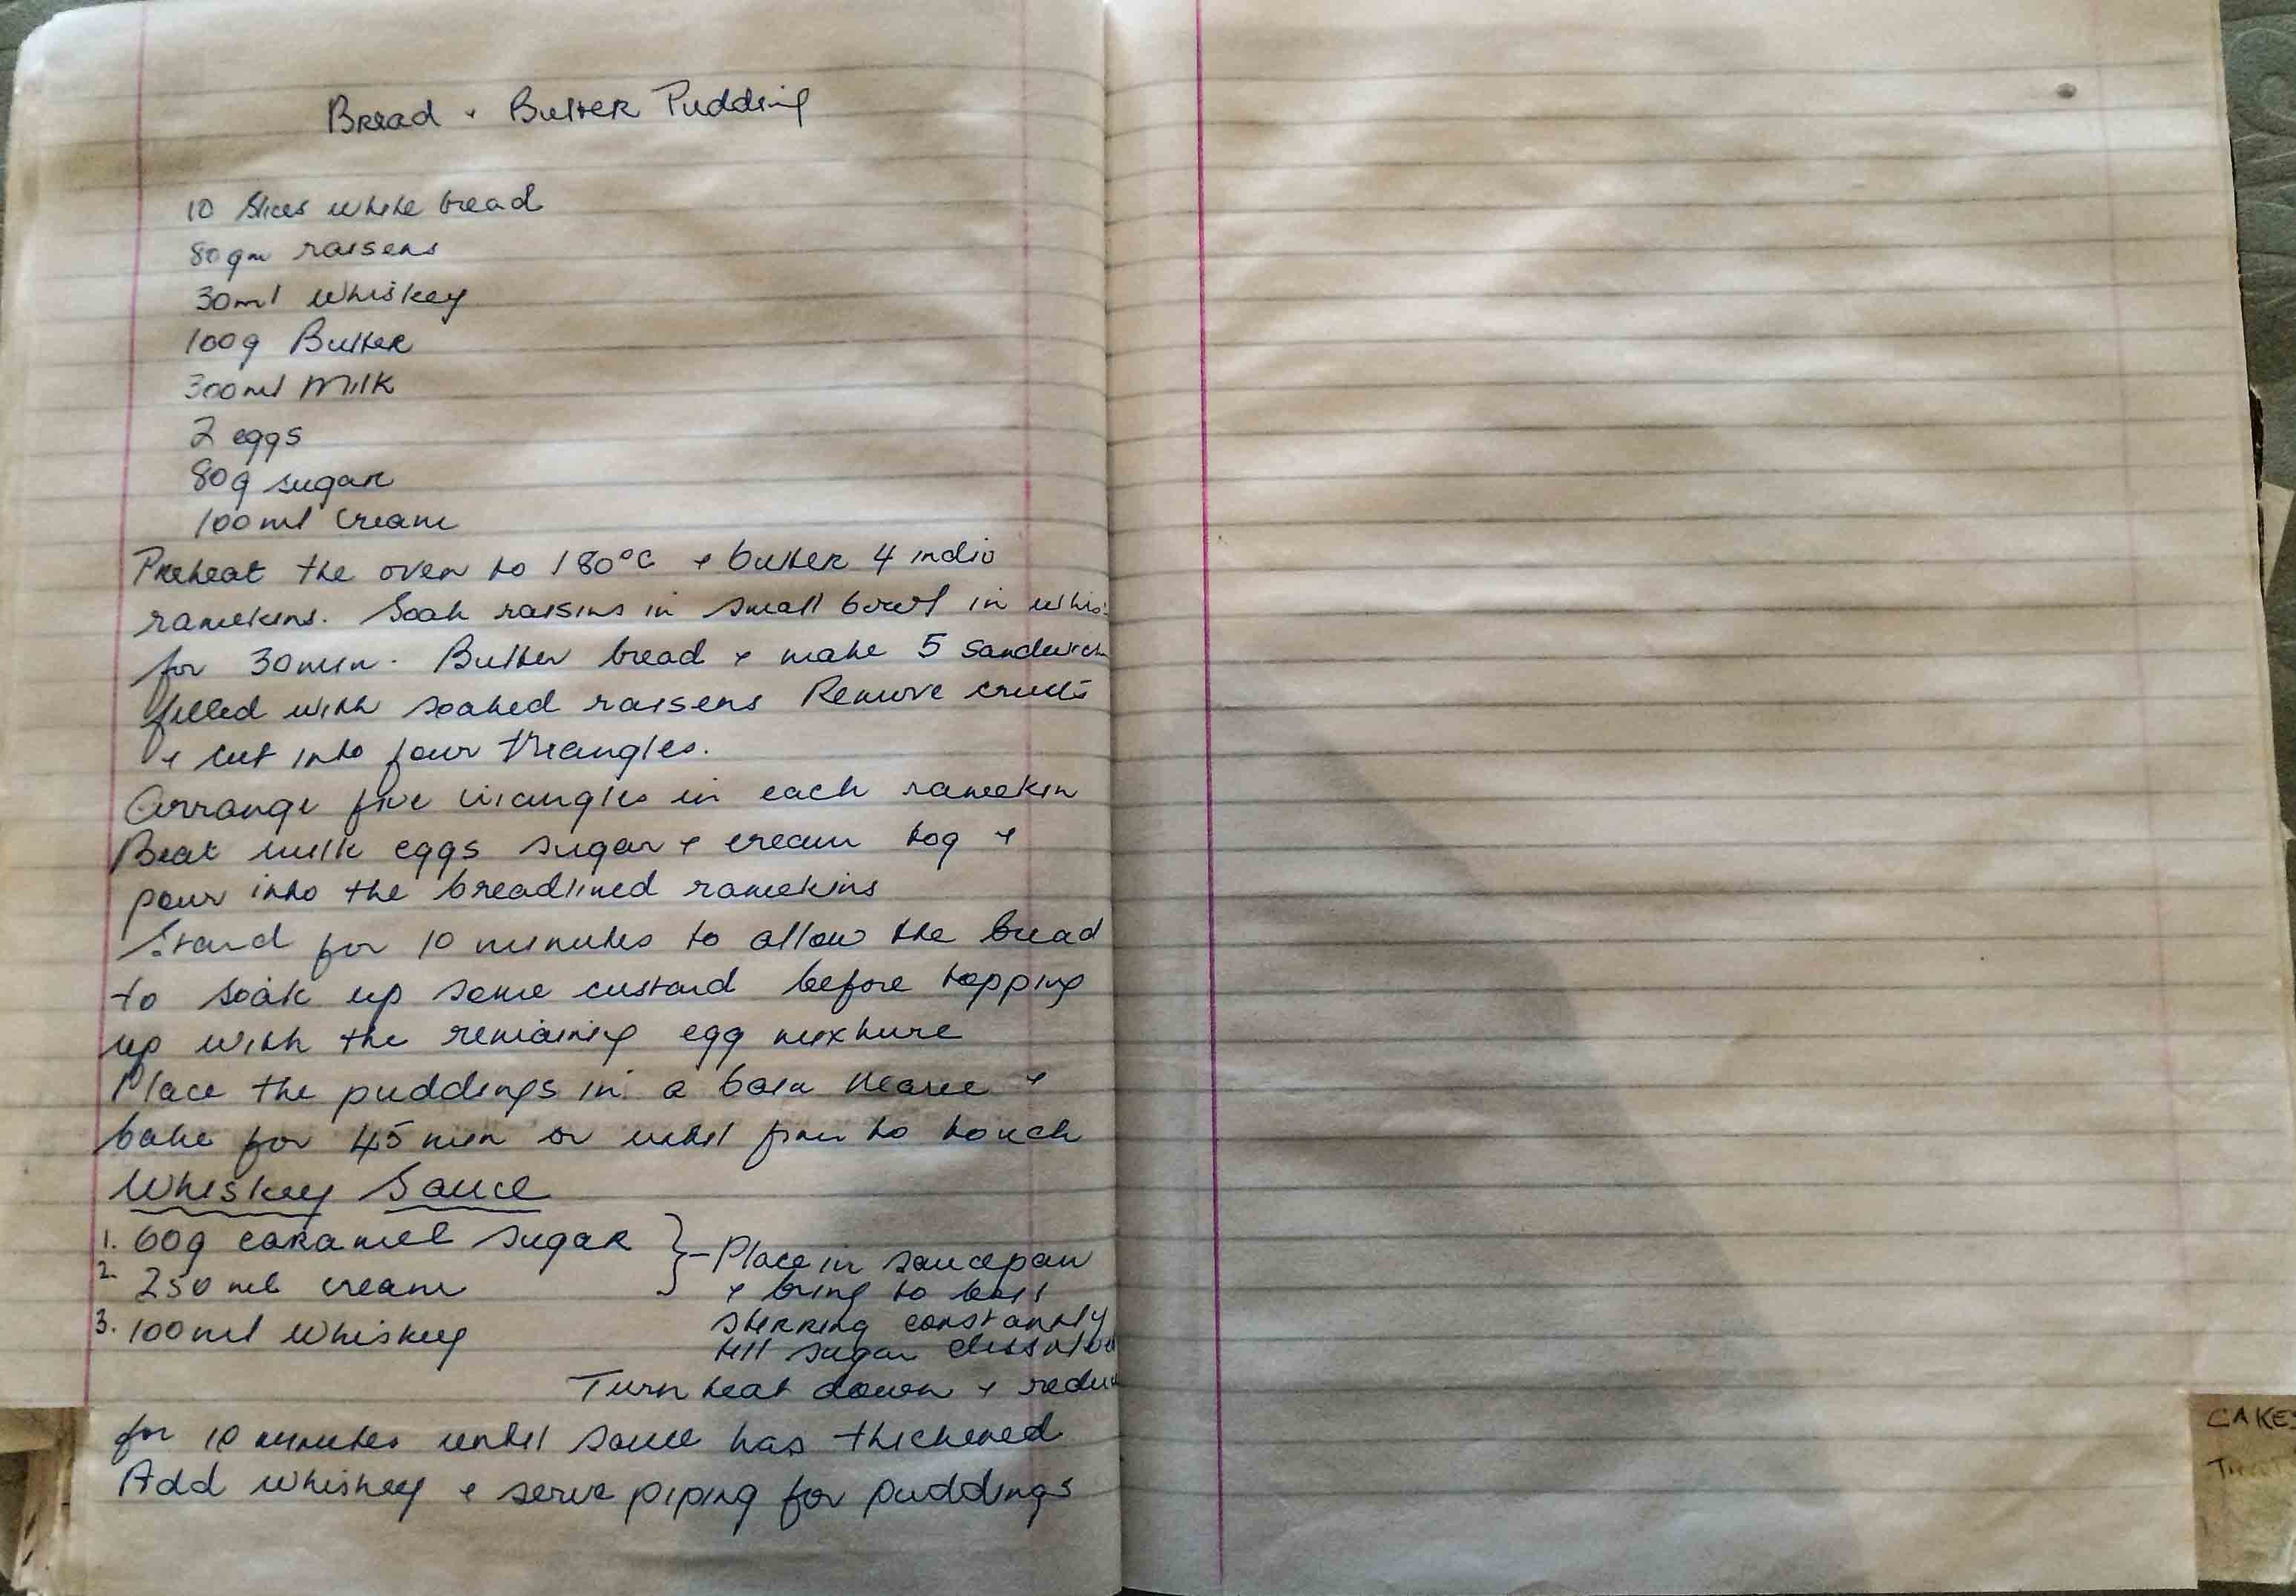 Bread & Butter Pudding
10 slices white bread
80gm raisens
30ml whiskey
100g Butter
300ml Milk
2 eggs
80g sugar
100ml cream
Preheat the oven to 180°C & butter 4 indiv
ramekins. Soak raisins in small bowl in whis
for 30min. Butter bread & make 5 sandwich
filled with soaked raisens Remove crusts
& cut into four triangles.
Arrange five triangles in each ramekin
Beat milk eggs sugar & cream tog &
pour into the breadlined ramekins
Stand for 10 minutes to allow the bread
to soak up some custard before topping
up with the remaining egg mixture
Place the puddings in a bain &
bake for 45 min or until firm to touch
Whiskey Sauce
1. 60g caramel sugar
2. 250ml cream
} - Place in saucepan
& bring to boil
3. 100ml whiskey
stirring constantly
till sugar dissolved
Turn heat down & reduc
for 10 minutes until sauce has thickened
Add whiskey & serve piping for puddings
CAKES